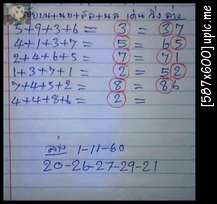 5+9+3+6 = 3 = 37
4+1+3+7 = 5 = 65
2+4+6+5 = 7 = 71
1+3+7+1 = 2 = 52
7+4+5+2 = 8 = 86
4+4+8+6 = 2 =
1-11-60
20-26-27-29-21
[587x600] upic.me